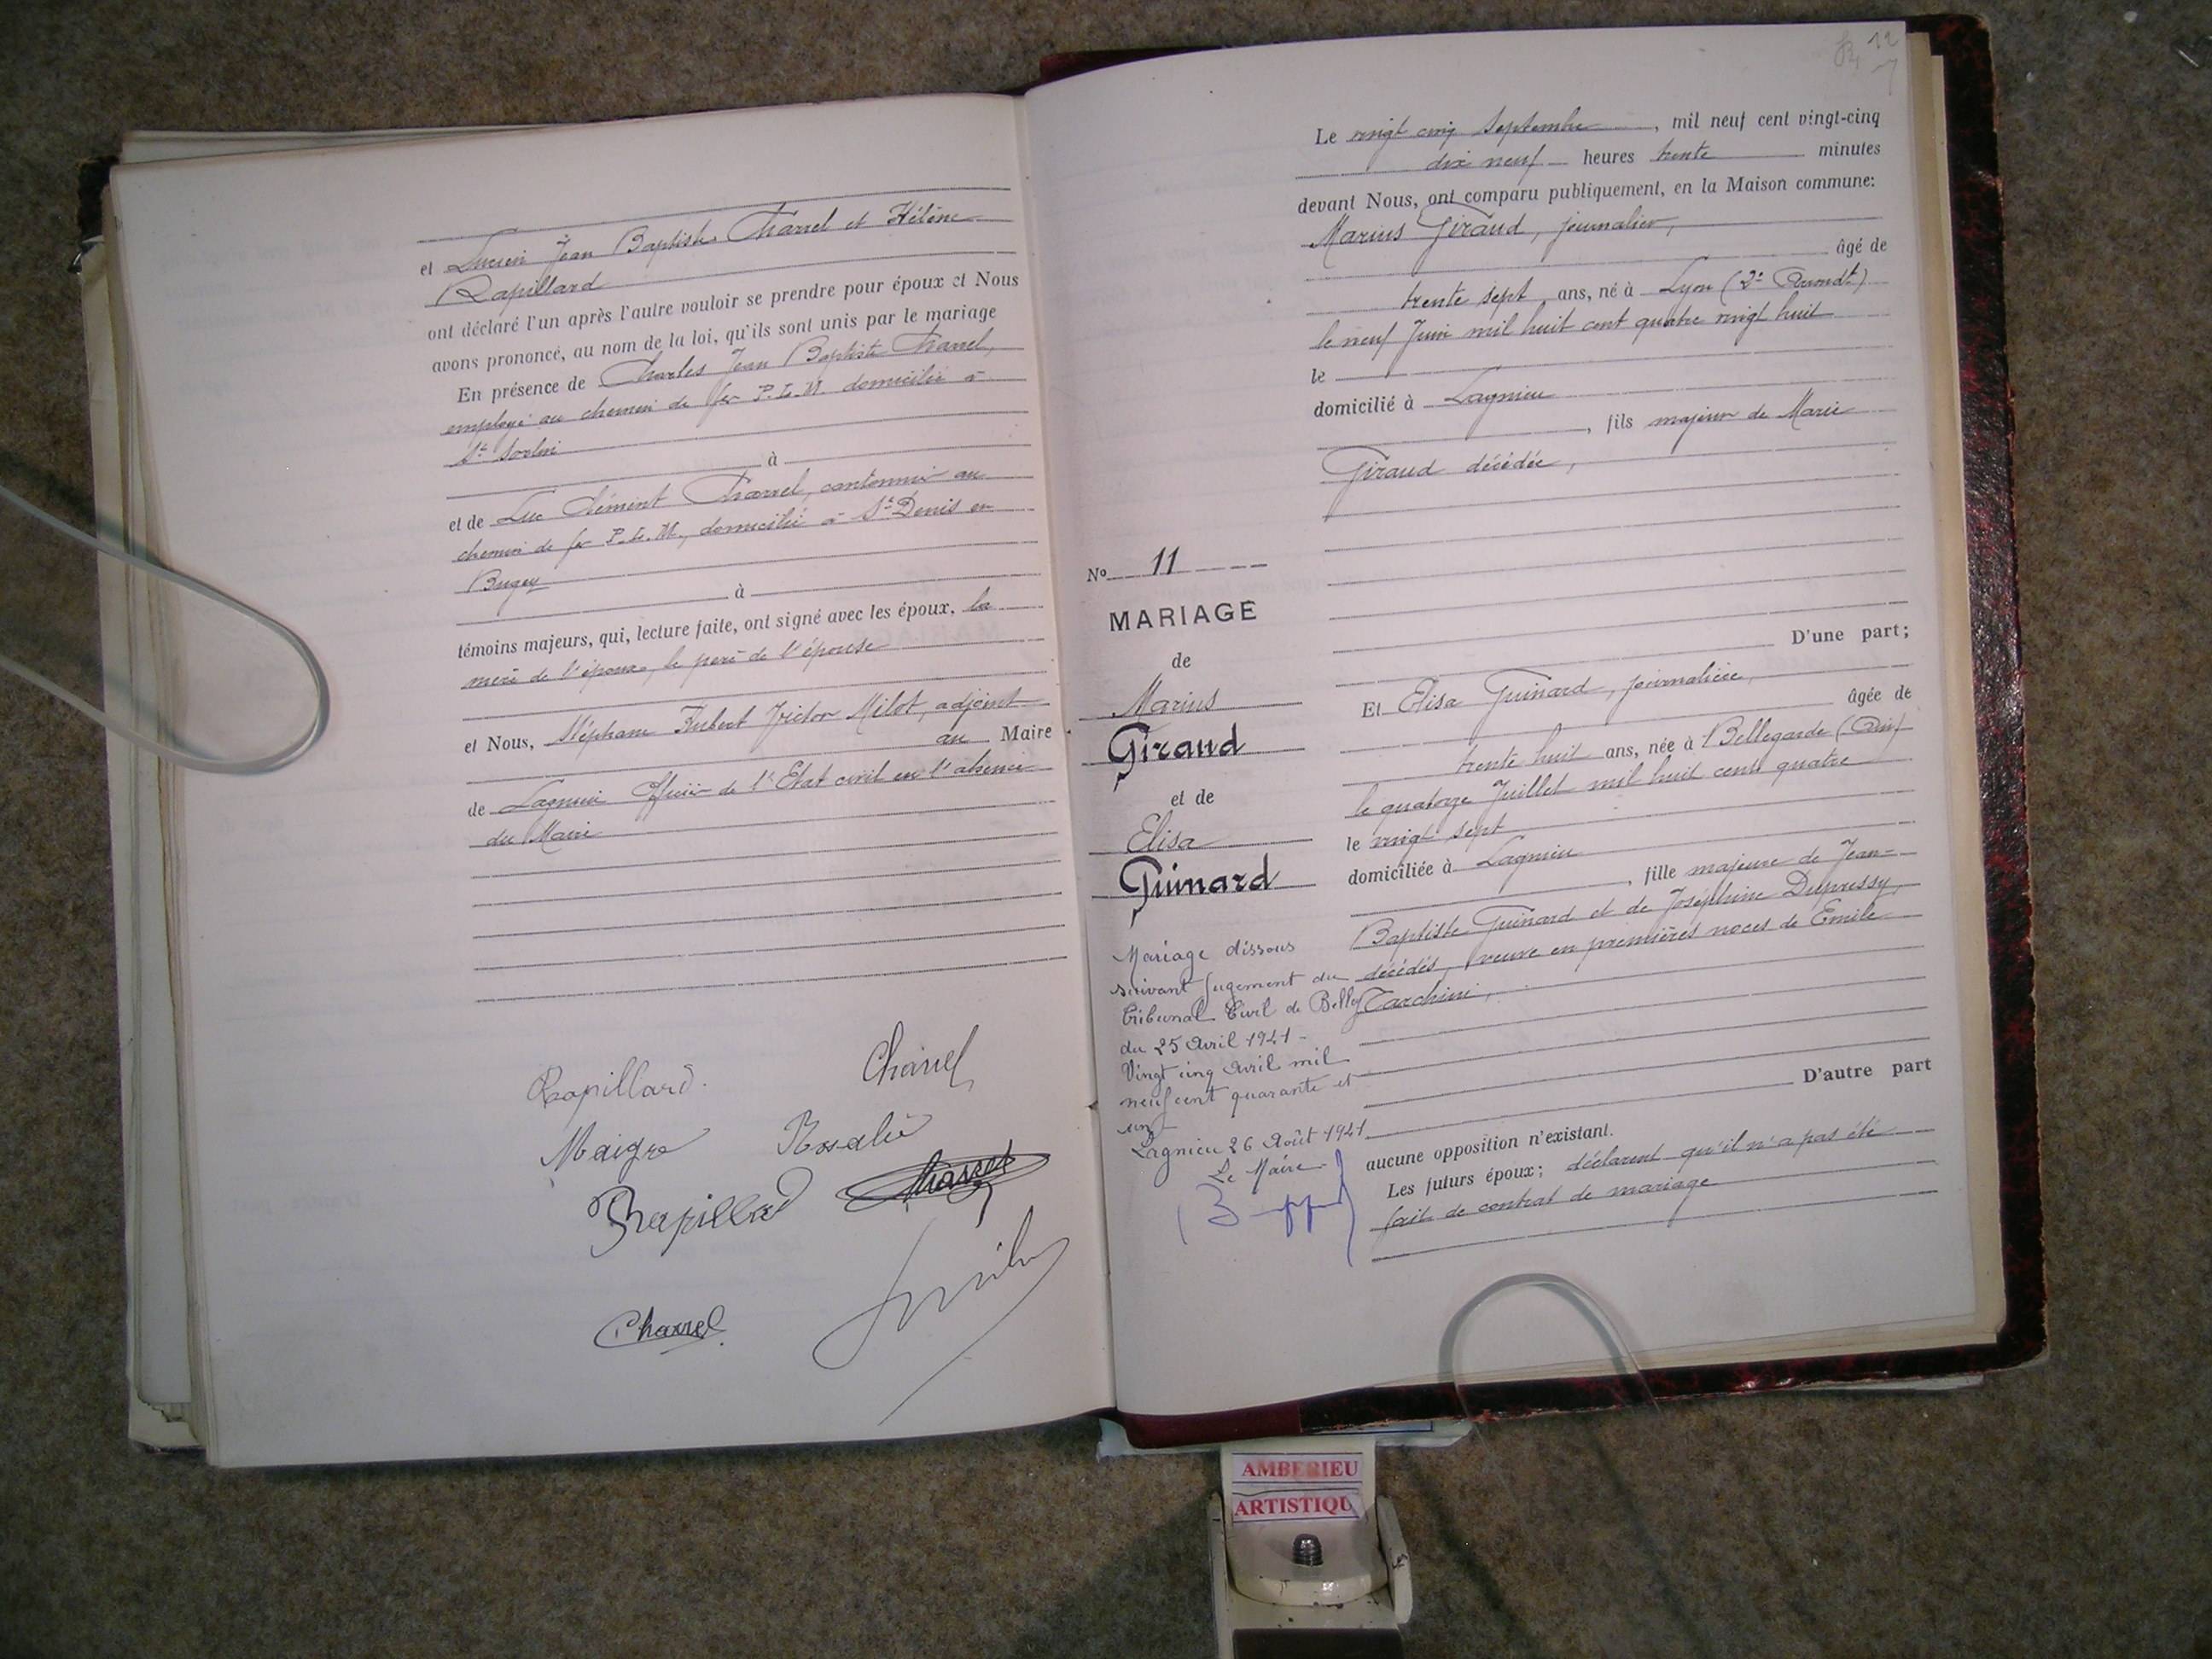 et Lucien Jean Baptiste Charrel et Hélène
Rapillard
ont déclaré l'un après l'autre vouloir se prendre pour époux et Nous
avons prononcé, au nom de la loi, qu'ils sont unis par le mariage
En présence de Charles Jean Baptiste Charrel,
employé au chemin de fer P.L.M. domicilié à
St Sorlin
à
et de Luc Clément Charrel, cantonnier au
chemin de fer P.L.M., domicilié à St Denis en
Bugey
à
témoins majeurs, qui, lecture faite, ont signé avec les époux, la
mère de l'époux, le père de l'épouse
et Nous, Stéphane Hubert Victor Milot, adjoint
au Maire
de Lagnieu Officier de l'Etat civil en l'absence
du Maire
Rapillard.
Charrel
Maigre
Rosalie
Rapillard
Charrel
Charrel
12
Le vingt cinq Septembre, mil neuf cent vingt-cinq
dix neuf heures trente minutes
devant Nous, ont comparu publiquement, en la Maison commune:
Marius Giraud, journalier,
âgé de
trente sept ans, né à Lyon (2e Arrondt)
le neuf Juin mil huit cent quatre vingt huit
le
domicilié à Lagnieu
, fils majeur de Marie
Giraud décédée,
D'une part;
Et Elisa Guinard, journalière,
âgée de
trente huit ans, née à Bellegarde (Ain)
le quatorze Juillet mil huit cent quatre
le vingt sept
domiciliée à Lagnieu
, fille majeure de Jean-
Baptiste Guinard et de Joséphine Dupressy,
décédés, veuve en premières noces de Emile
Tarchini,
D'autre part
aucune opposition n'existant.
Les futurs époux; déclarent qu'il n'a pas été
fait de contrat de mariage
No 11
MARIAGE
de
Marius
Giraud
et de
Elisa
Guinard
Mariage dissous
suivant jugement du
Tribunal Civil de Belley
du 25 Avril 1941-
Vingt cinq Avril mil
neuf cent quarante et
un-
Lagnieu 26 Août 1941
Le Maire
AMBERIEU
ARTISTIQU